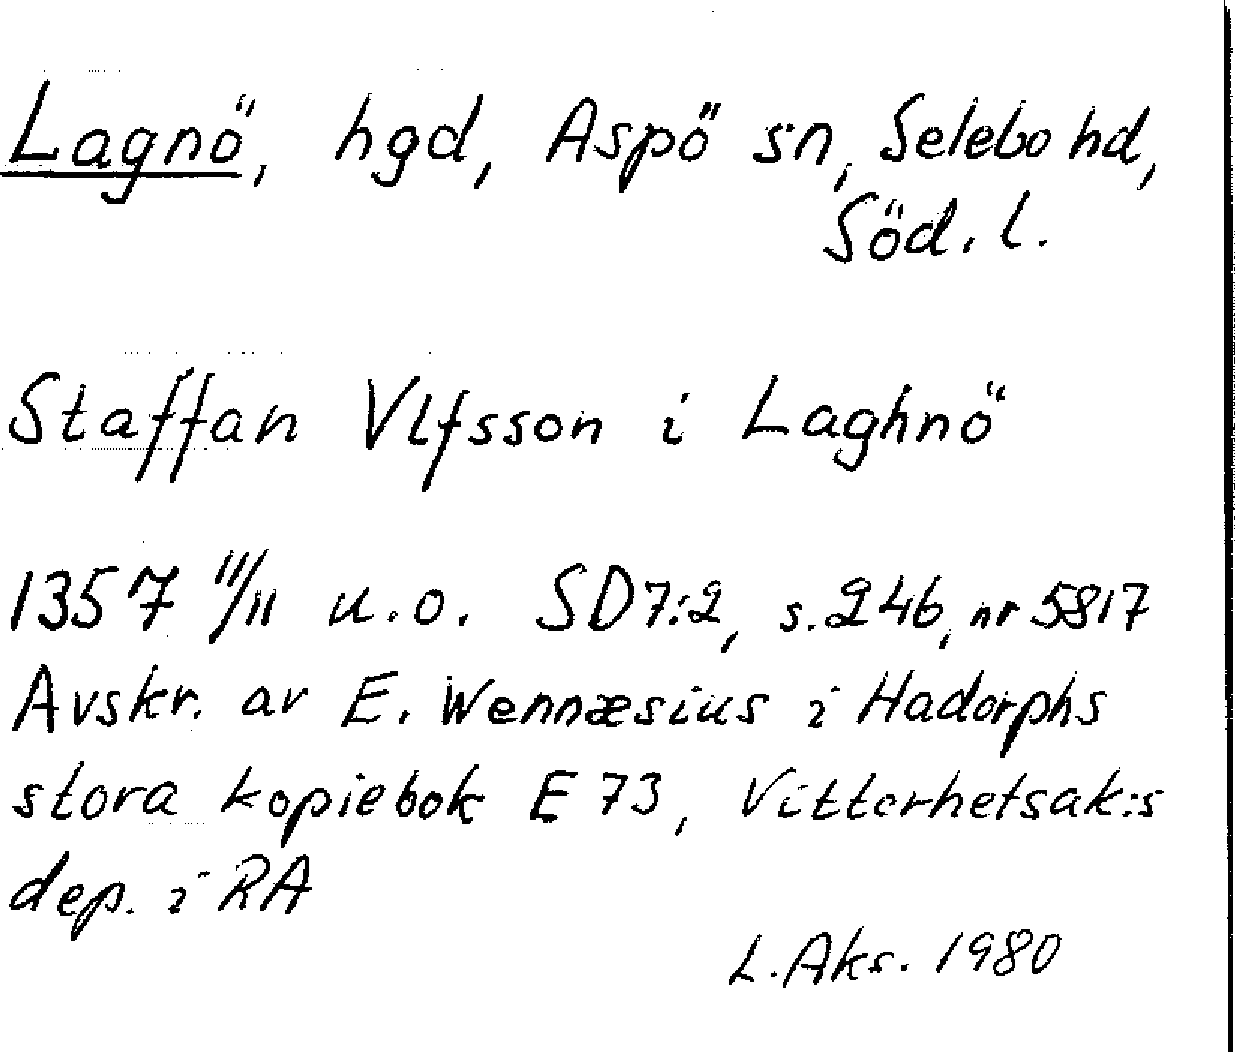 Lagnö, hgd, Aspö sn, Selebo hd,
Söd. l.
Staffan Vlfsson i Laghnö
1357 11/11 u.o. SD 7:2, s. 246, nr 5817
Avskr. av E. Wennæsius i Hadorphs
stora kopiebok E 73, Vitterhetsak:s
dep. i RA
L. Aks. 1980